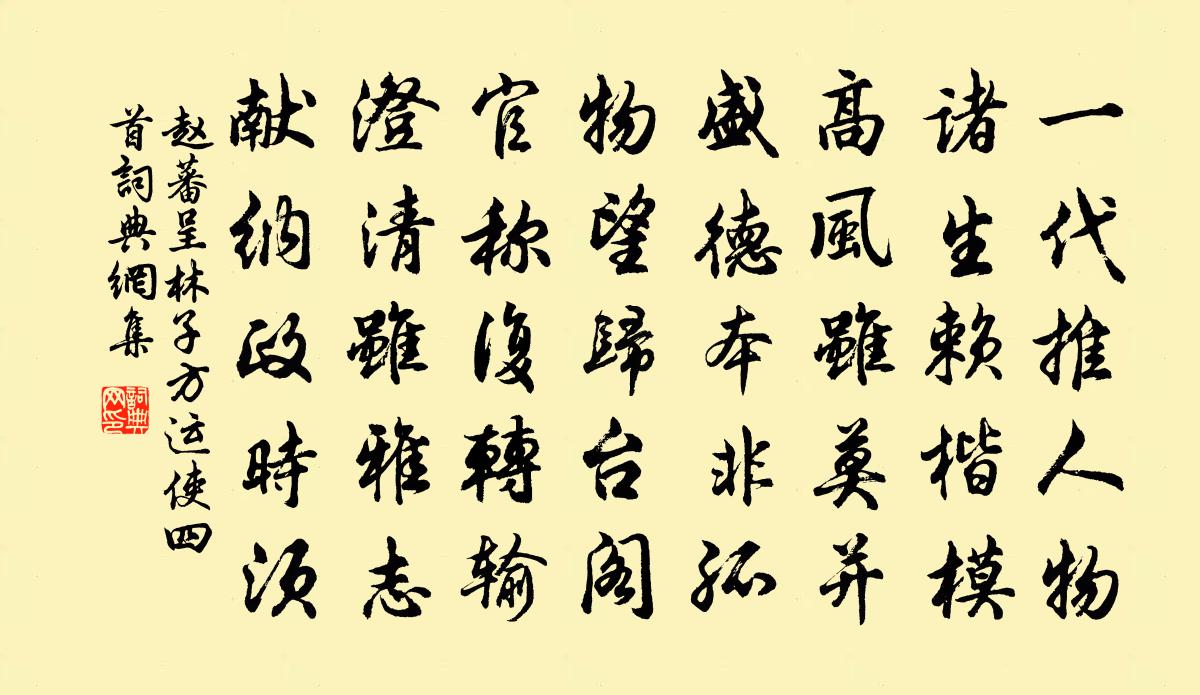 一代推人物
诸生赖楷模
高風雖莫并
盛德本非孤
物望歸台阁
官称復轉输
澄清雖雅志
献纳政時须
赵蕃呈林子方运使四
首詞典網集
詞典网印